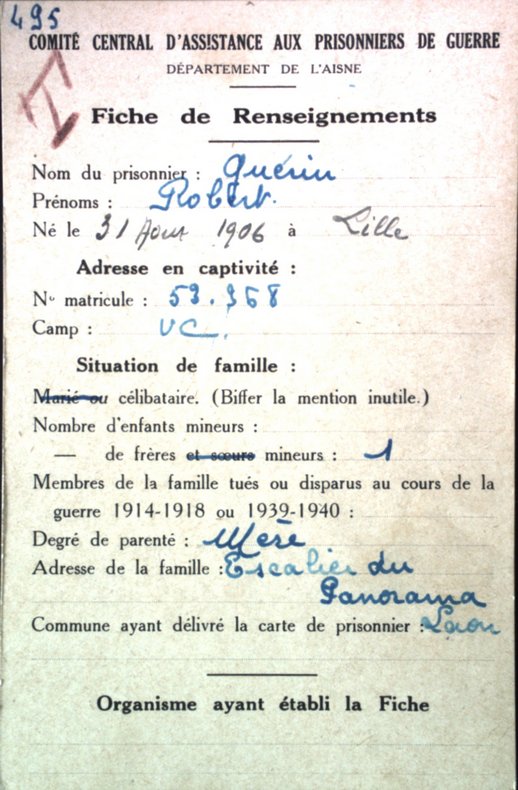 495
COMITÉ CENTRAL D'ASSISTANCE AUX PRISONNIERS DE GUERRE
DÉPARTEMENT DE L'AISNE
Fiche de Renseignements
Nom du prisonnier : Guérin
Prénoms : Robert.
Né le 31 Aout 1906 à Lille
Adresse en captivité :
No matricule : 59.968
Camp : VC.
Situation de famille :
Marié ou célibataire. (Biffer la mention inutile.)
Nombre d'enfants mineurs :
— de frères et sœurs mineurs : 1
Membres de la famille tués ou disparus au cours de la
guerre 1914-1918 ou 1939-1940 :
Degré de parenté : Mère
Adresse de la famille : Escalier du
Panorama
Commune ayant délivré la carte de prisonnier : Laon
Organisme ayant établi la Fiche